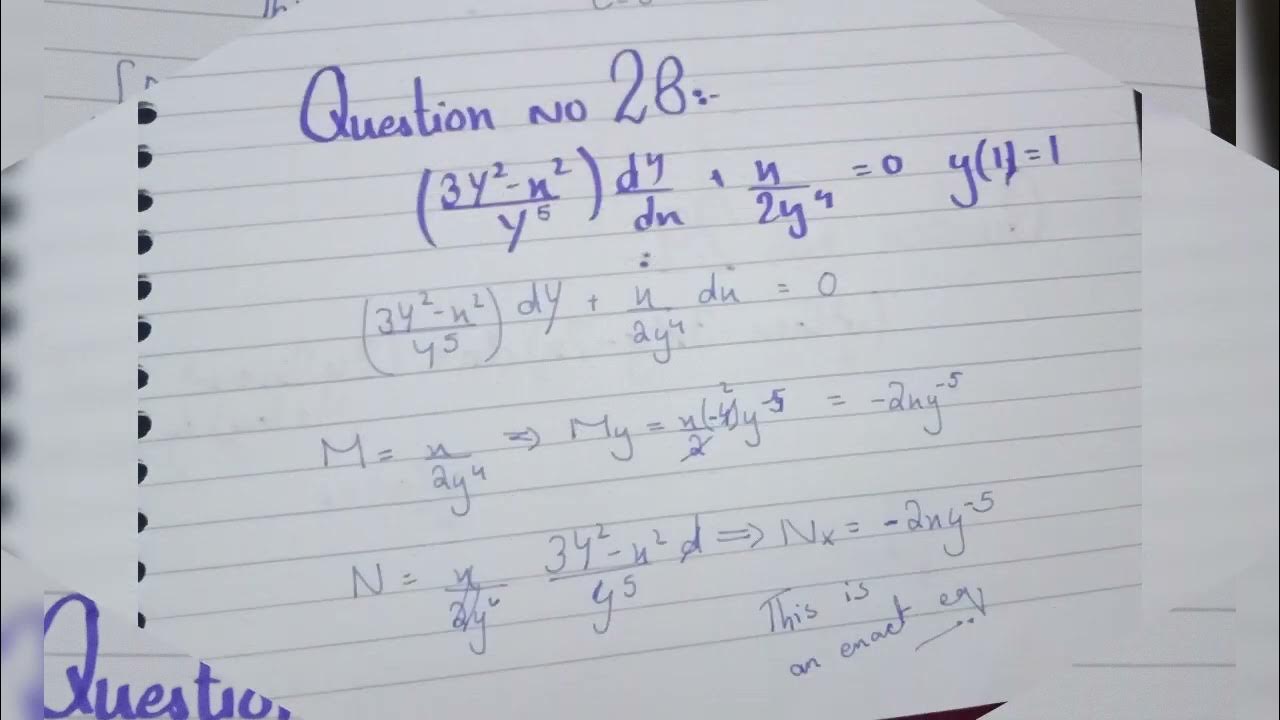 Question no 28:-
(3y²-x²/y⁵) dy/dx + x/2y⁴ = 0 y(1)=1
(3y²-x²/y⁵) dy + x/2y⁴ dx = 0
M = x/2y⁴ => My = x(-4)y⁻⁵/2 = -2xy⁻⁵
N = 3y²-x²/y⁵ => Nx = -2xy⁻⁵
This is
an exact eq
Question